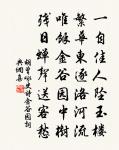 一自佳人墜玉樓
繁華東逐洛河流
唯餘金谷園中樹
殘日蟬聲送客愁
胡曾詠史詩金谷園詞
典網集